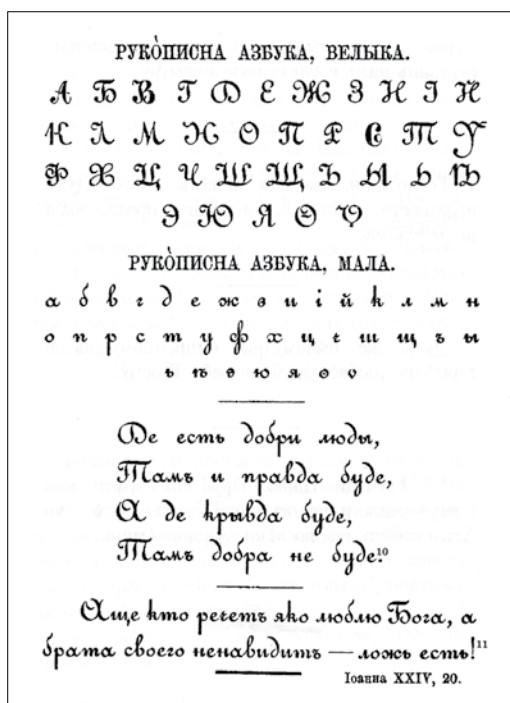 РУКО̀ПИСНА АЗБУКА, ВЕЛЫКА.
А Б В Г Д Е Ж З И І Й
К Л М Н О П Р С Т У
Ф Х Ц Ч Ш Щ Ъ Ы Ь Ѣ
Э Ю Я Ѳ Ѵ
РУКО̀ПИСНА АЗБУКА, МАЛА.
а б в г д е ж з и і й к л м н
о п р с т у ф х ц ч ш щ ъ ы
ь ѣ э ю я ѳ ѵ
Де есть добри люды,
Тамъ и правда буде,
А де крывда буде,
Тамъ добра не буде.¹⁰
Аще кто речетъ яко люблю Бога, а
брата своего ненавидитъ — ложь есть!¹¹
Іоанна XXIV, 20.